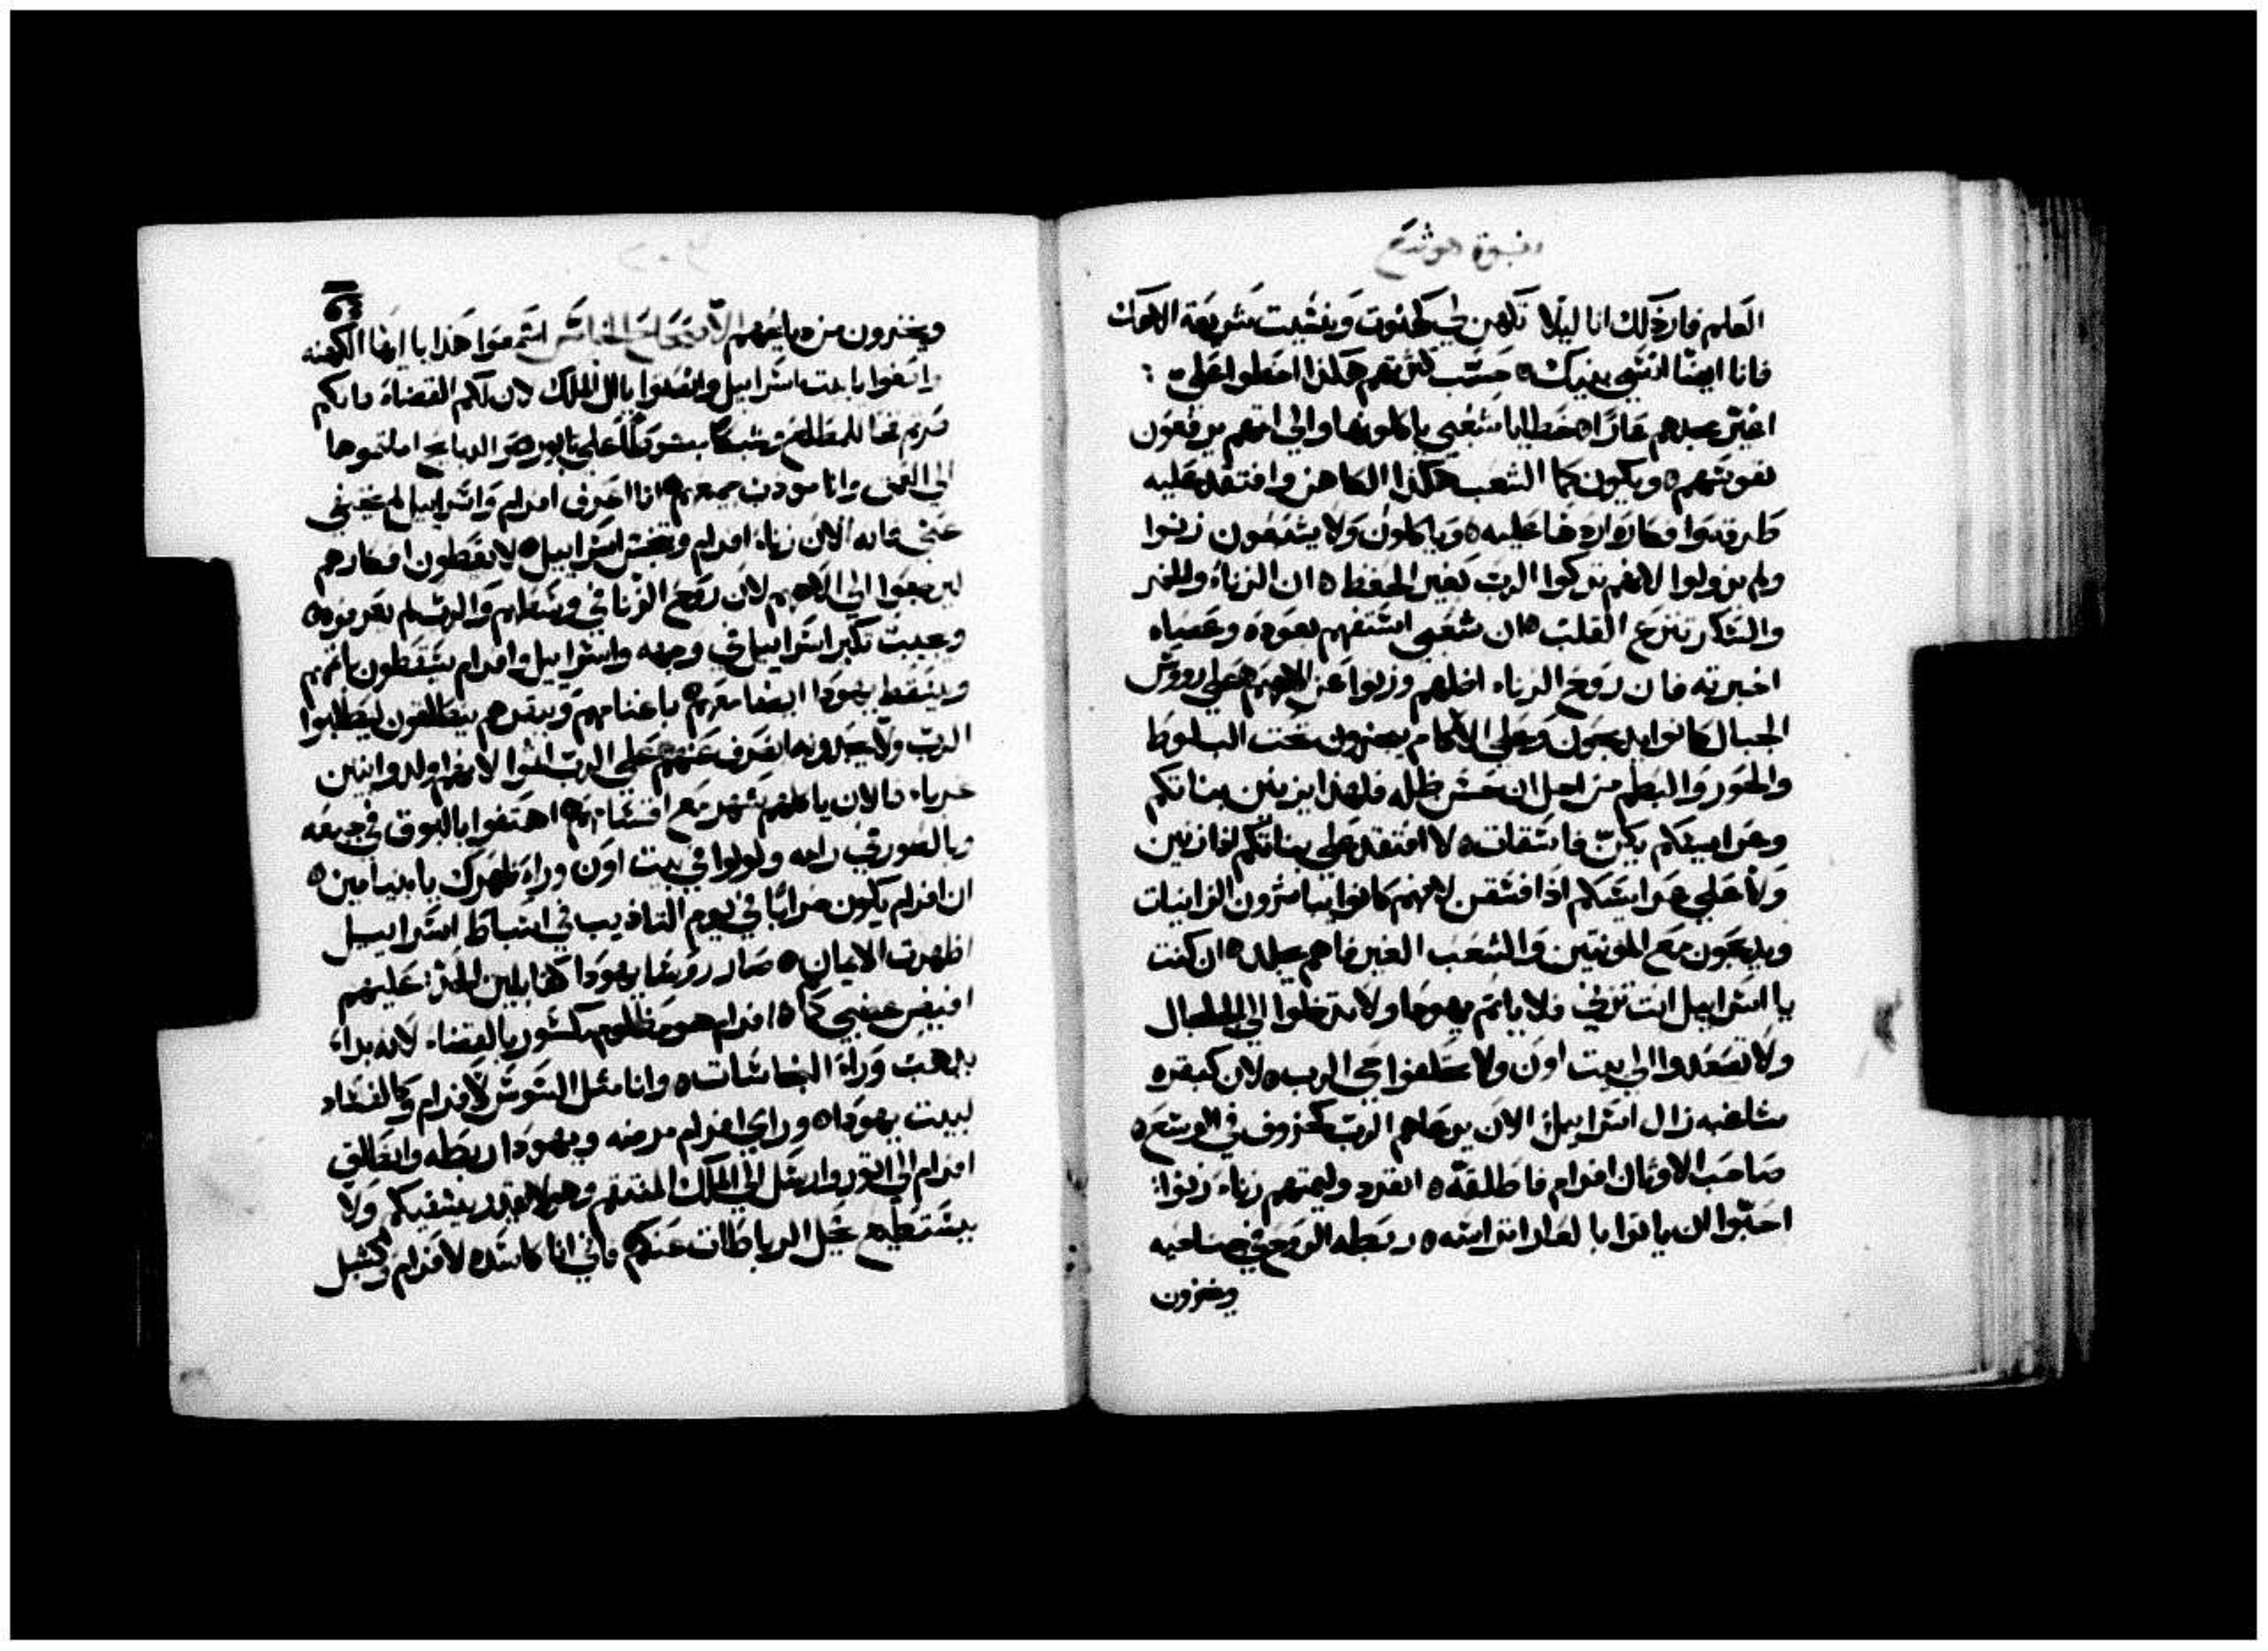 نبوة هوشع
العلم فارذلك انا ليلا تكهن لي كهنوت ونسيت شريعة الاهك
فانا ايضا انسي بنيك ٥ حسب كثرتهم هكذا اخطوا علي :
اغير مجدهم عارًا ٥ خطايا شعبي ياكلونها والي اثمهم يرفعون
نفوسهم ٥ ويكون كما الشعب هكذا الكاهن وافتقد عليه
طرقه وافكاره اردها عليه ٥ وياكلون ولا يشبعون زنوا
ولم يزولوا لانهم تركوا الرب بغير الحفظ ٥ ان الزناء والخمر
والسكر تنزع القلب ٥ ان شعبي استفهم بعوده وعصاه
اخبرته فان روح الزناء اضلهم وزنوا عن الاههم ٥ علي رووس
الجبال كانوا يدبحون وعلي الاكام يبخرون تحت البلوط
والحور والبطم من اجل ان حسن ظله فلهذا يزنين بناتكم
وعرايسكم يكن فاسقات ٥ لا افتقد علي بناتكم اذا زنين
ولا علي عرايسكم اذا فسقن لانهم كانوا يباشرون الزانيات
ويدبحون مع المونتين والشعب الغير فاهم يجلد ٥ ان كنت
يا اسراييل انت تزني فلا ياثم يهودا ولا تدخلوا الي الجلجال
ولا تصعدوا الي بيت اون ولا تحلفوا حي الرب ٥ لان كبقره
شاغبه زال اسراييل الان يرعاهم الرب كخروف في الوسع ٥
صاحب الاوثان افرام فاطلقه ٥ انفرد وليمتهم زناء زنوا :
احبوا ان ياتوا بالعار اتراسه ٥ ربطه الروح في جناحيه
ويخزون
ويخزون من دبايحهم الاصحاح الخامس اسمعوا هذا يا ايها الكهنه
وانصتوا يا بيت اسراييل وانصتوا يا ال الملك لان لكم القضاة فانكم
صرتم فخا للمطلع وشبكا مبسوطًا علي تابور ٥ والدبايح املتموها
الي العمق وانا مودب جميعهم ٥ انا اعرف افرام واسراييل لم يختفي
عني فانه الان زناء افرام وتنجس اسراييل ٥ لا يعطون افكارهم
ليرجعوا الي الاههم لان روح الزنا في وسطهم والرب لم يعرفوه ٥
وجيبت تكبر اسراييل في وجهه واسراييل وافرام يسقطون باثمهم
ويسقط يهودا ايضا معهم ٥ باغنامهم وبقرهم ينطلقون ليطلبوا
الرب ولا يجدونه انصرف عنهم علي الرب اثموا لانهم اولدوا بنين
غرباء فالان ياكلهم شهر مع اقسامهم ٥ اهتفوا بالبوق في جبعه
وبالصور في رامه ولولوا في بيت اون وراء ظهرك يا بنيامين ٥
ان افرام يكون خرابًا في يوم التاديب في اسباط اسراييل
اظهرت الايمان ٥ صار رووسا يهودا كنا بلين الحد : عليهم
افيض غضبي كما ٥ افرام هو مظلوم مكسور بالقضاء لانه بداء
يدهب وراء النجاسات ٥ وانا مثل السوس لافرام وكالفساد
لبيت يهودا ٥ وراي افرام مرضه ويهودا ربطه وانطلق
افرام الي اتور وارسل الي الملك المنتقم وهو لا يقدر يشفيكم ولا
يستطيع يحل الرباطات عنكم ٥ فاني انا كاسده لافرام وكشبل